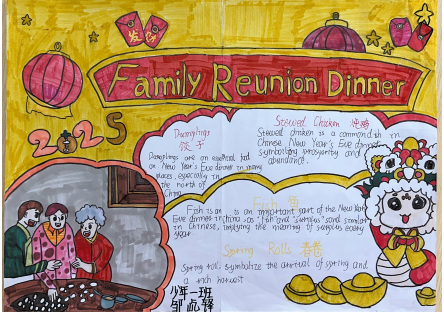 发财
Family Reunion Dinner
2025
Dumplings
饺子
Dumplings are an essential food
on New Year's Eve dinner in many
places, especially in
the north of
China
Stewed Chicken 炖鸡
Stewed chicken is a common dish in
Chinese New Year's Eve dinner
symbolizing prosperity and
abundance.
Fish 鱼
Fish is an is an important part of the New Year
Eve dinner in China as "fish" and "surplus" sound similar
in Chinese, implying the meaning of surplus every
year
Spring Rolls 春卷
Spring roll symbolize the arrival of spring and
a rich harvest
少年一班